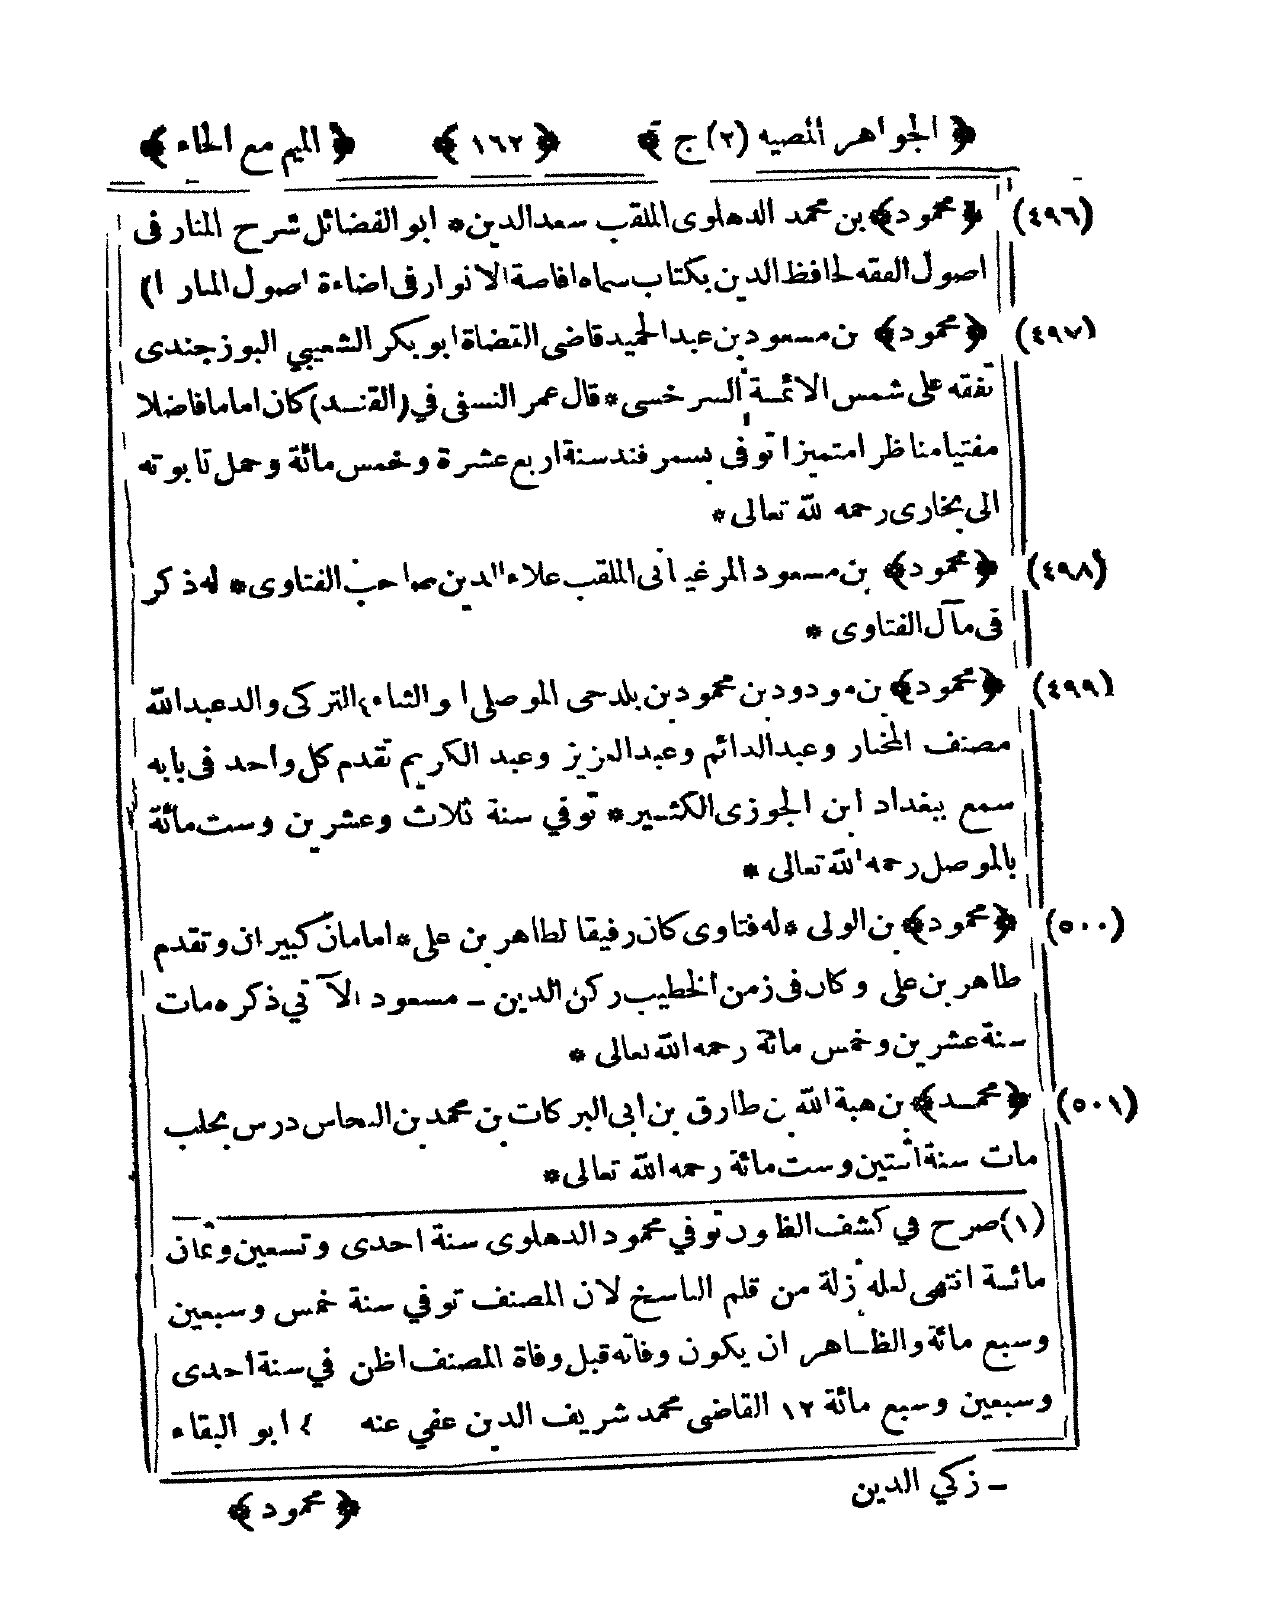 ﴿الجواهر المضيه (٢) ج ق﴾ ﴿١٦٢﴾ ﴿الميم مع الحاء﴾
(٤٩٦) ﴿محمود﴾ بن محمد الدهلوى الملقب سعد الدين * ابو الفضائل شرح المنار فى
اصول الفقه لحافظ الدين بكتاب سماه افاضة الانوار فى اضاءة اصول المنار ١)
(٤٩٧) ﴿محمود﴾ بن مسعود بن عبد الحميد قاضى القضاة ابو بكر الشعيبي البوزجندى
تفقه على شمس الائمة السرخسى * قال عمر النسفى في (القند) كان اماما فاضلا
مفتيا مناظرا متميزا توفى بسمرقند سنة اربع عشرة وخمس مائة وحمل تابوته
الى بخارى رحمه لله تعالى *
(٤٩٨) ﴿محمود﴾ بن مسعود المرغينانى الملقب علاء الدين صاحب الفتاوى * له ذكر
فى مآل الفتاوى *
(٤٩٩) ﴿محمود﴾ بن مودود بن محمود بن بلدحى الموصلى ابو الثناء ٤ التركى والد عبد الله
مصنف المختار وعبد الدائم وعبد العزيز وعبد الكريم تقدم كل واحد فى بابه
سمع ببغداد ابن الجوزى الكثير * توفي سنة ثلاث وعشرين وست مائة
بالموصل رحمه الله تعالى *
(٥٠٠) ﴿محمود﴾ بن الولى * له فتاوى كان رفيقا لطاهر بن على * امامان كبيران وتقدم
طاهر بن على وكان فى زمن الخطيب ركن الدين – مسعود الآتي ذكره مات
سنة عشرين وخمس مائة رحمه الله تعالى *
(٥٠١) ﴿محمد﴾ بن هبة الله بن طارق بن ابى البركات بن محمد بن النحاس درس بحلب
مات سنة اثنتين وست مائة رحمه الله تعالى *
(١) صرح في كشف الظنون توفي محمود الدهلوى سنة احدى وتسعين وثمان
مائة انتهى لعله زلة من قلم الناسخ لان المصنف توفي سنة خمس وسبعين
وسبع مائة والظاهر ان يكون وفاته قبل وفاة المصنف اظن في سنة احدى
وسبعين وسبع مائة ١٢ القاضى محمد شريف الدين عفي عنه ٤ ابو البقاء
– زكي الدين
﴿محمود﴾